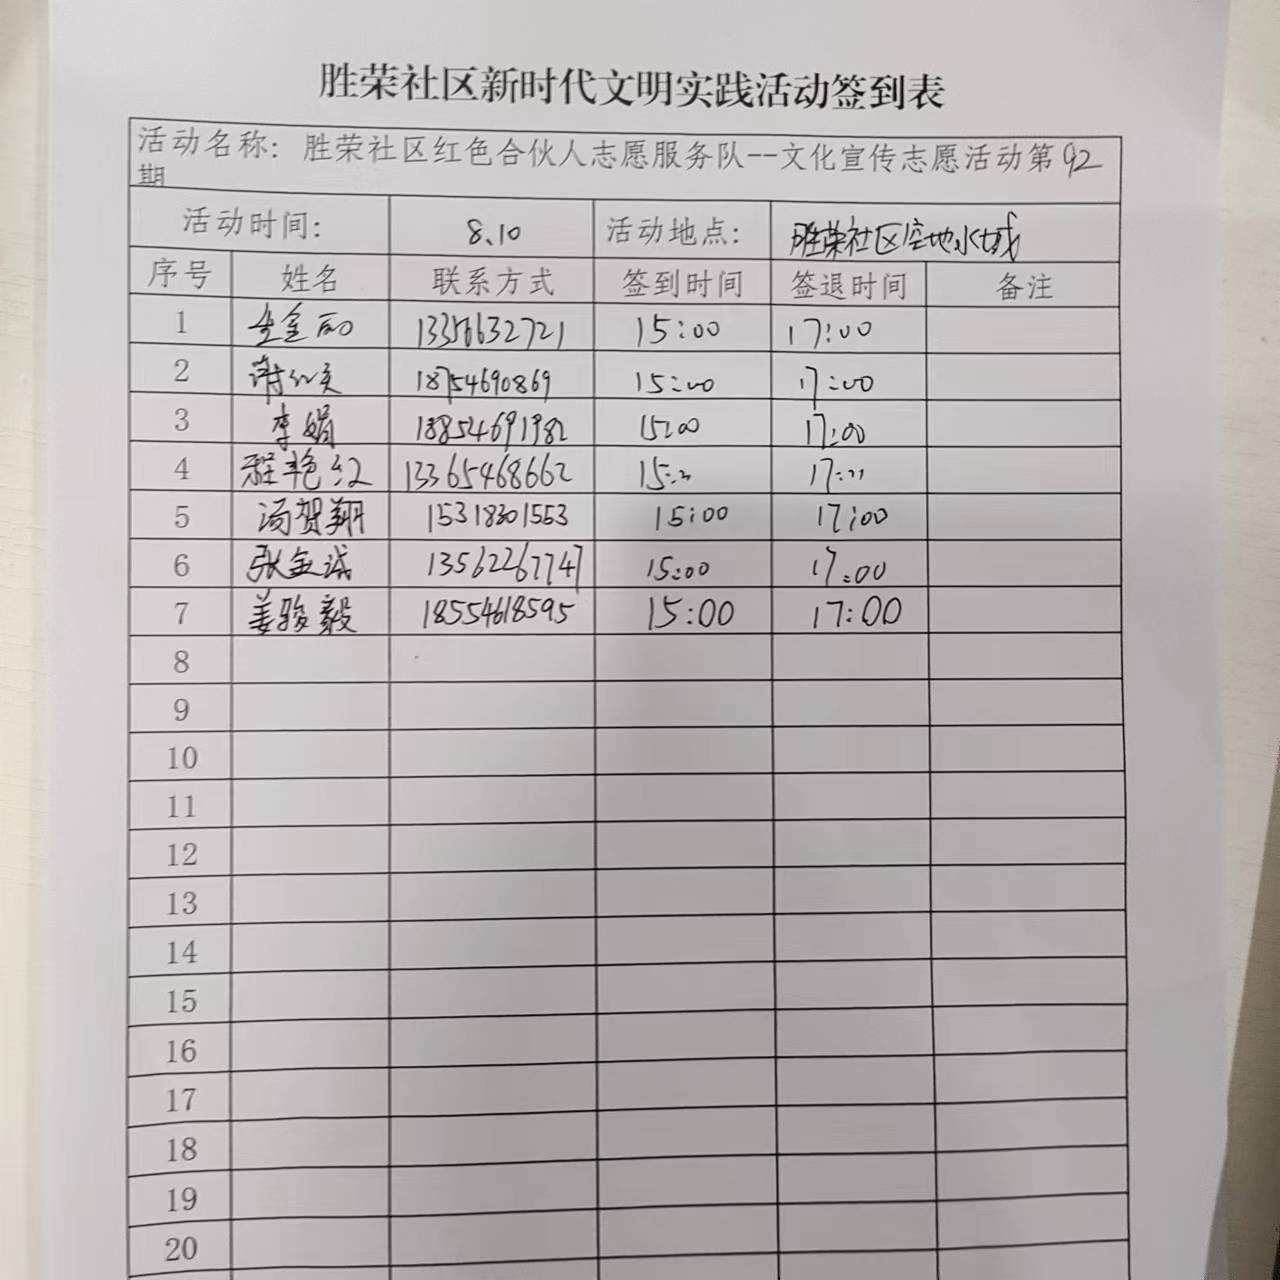 胜荣社区新时代文明实践活动签到表
活动名称：胜荣社区红色合伙人志愿服务队--文化宣传志愿活动第92
期
活动时间： 8.10 活动地点： 胜荣社区 水城
序号 姓名 联系方式 签到时间 签退时间 备注
1 15:00 17:00
2 18754690869 15:00 17:00
3 李娟 15:00 17:00
4 程艳红 13365468662 15: 17:
5 汤贺翔 15318301553 15:00 17:00
6 张金诚 13562267747 15:00 17:00
7 姜骏毅 18554618595 15:00 17:00
8
9
10
11
12
13
14
15
16
17
18
19
20